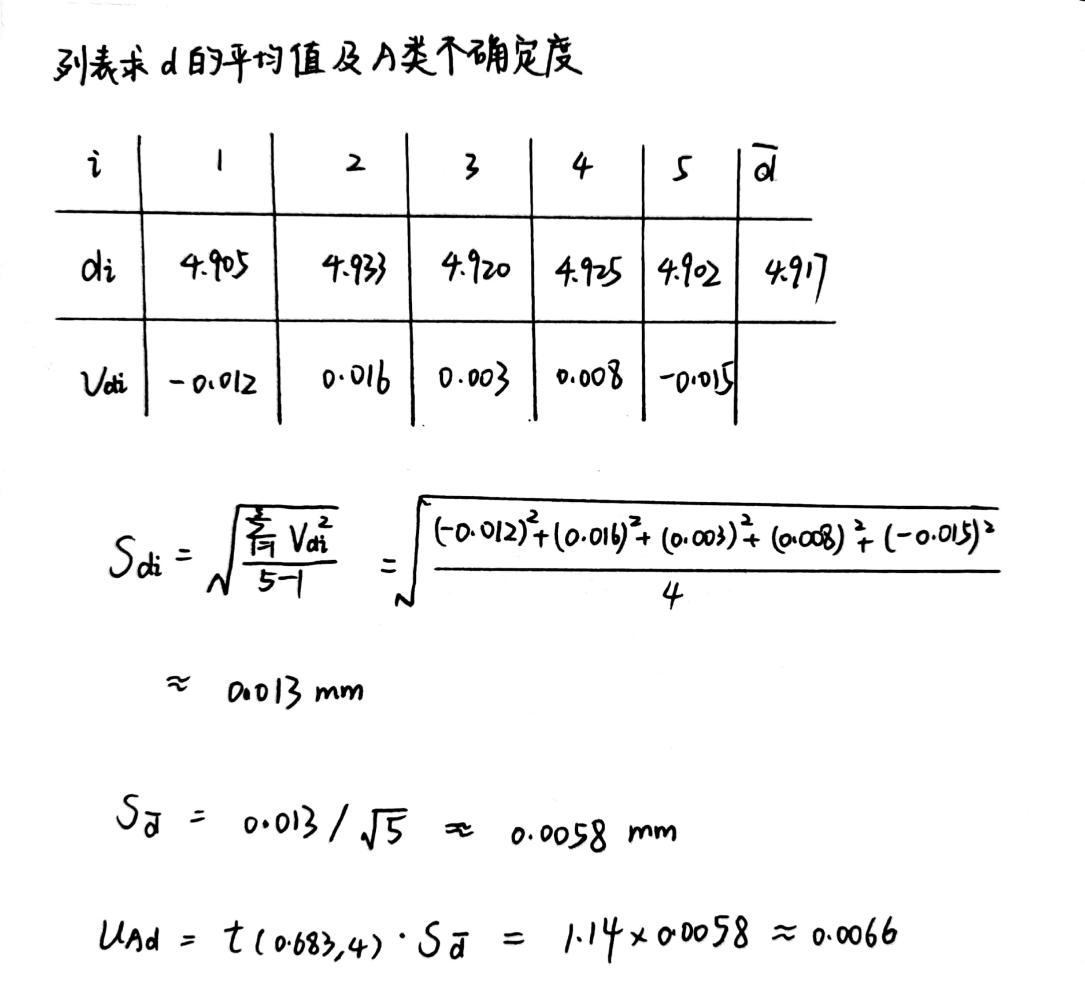 列表求 d 的平均值及 A类不确定度
i 1 2 3 4 5 d̅
di 4.905 4.933 4.920 4.925 4.902 4.917
Vdi -0.012 0.016 0.003 0.008 -0.015
Sdi = √(∑ᵢ₌₁⁵ Vdi² / 5-1) = √((-0.012)²+(0.016)²+(0.003)²+(0.008)²+(-0.015)² / 4)
≈ 0.013 mm
Sd̅ = 0.013 / √5 ≈ 0.0058 mm
UAd = t(0.683,4) · Sd̅ = 1.14 × 0.0058 ≈ 0.0066